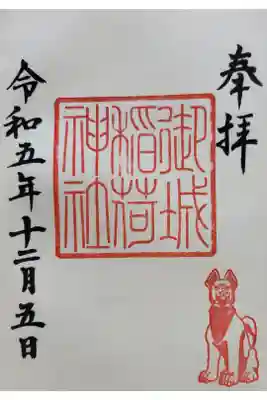 奉拝
御城
稲荷
神社
令和五年十二月五日